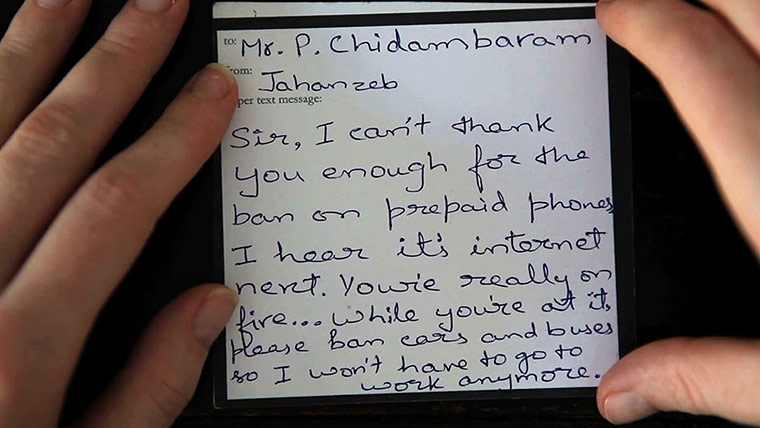 to: Mr. P. Chidambaram
from: Jahanzeb
per text message:
Sir, I can't thank
you enough for the
ban on prepaid phones
I hear it's internet
next. You're really on
fire... while you're at it,
please ban cars and buses
so I won't have to go to
work anymore.